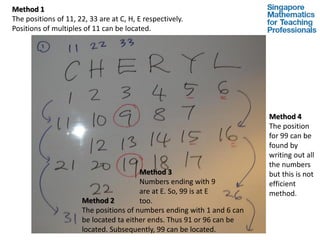 Method 1
The positions of 11, 22, 33 are at C, H, E respectively.
Positions of multiples of 11 can be located.
Singapore
Mathematics
for Teaching
Professionals
1 11 22 33
C H E R Y L
1 2 3 4 5 6
11 10 9 8 7
12 13 14 15 16
21 20 19 18 17
22
26
31
Method 4
The position
for 99 can be
found by
writing out all
the numbers
but this is not
efficient
method.
Method 3
Numbers ending with 9
are at E. So, 99 is at E
too.
Method 2
The positions of numbers ending with 1 and 6 can
be located ta either ends. Thus 91 or 96 can be
located. Subsequently, 99 can be located.